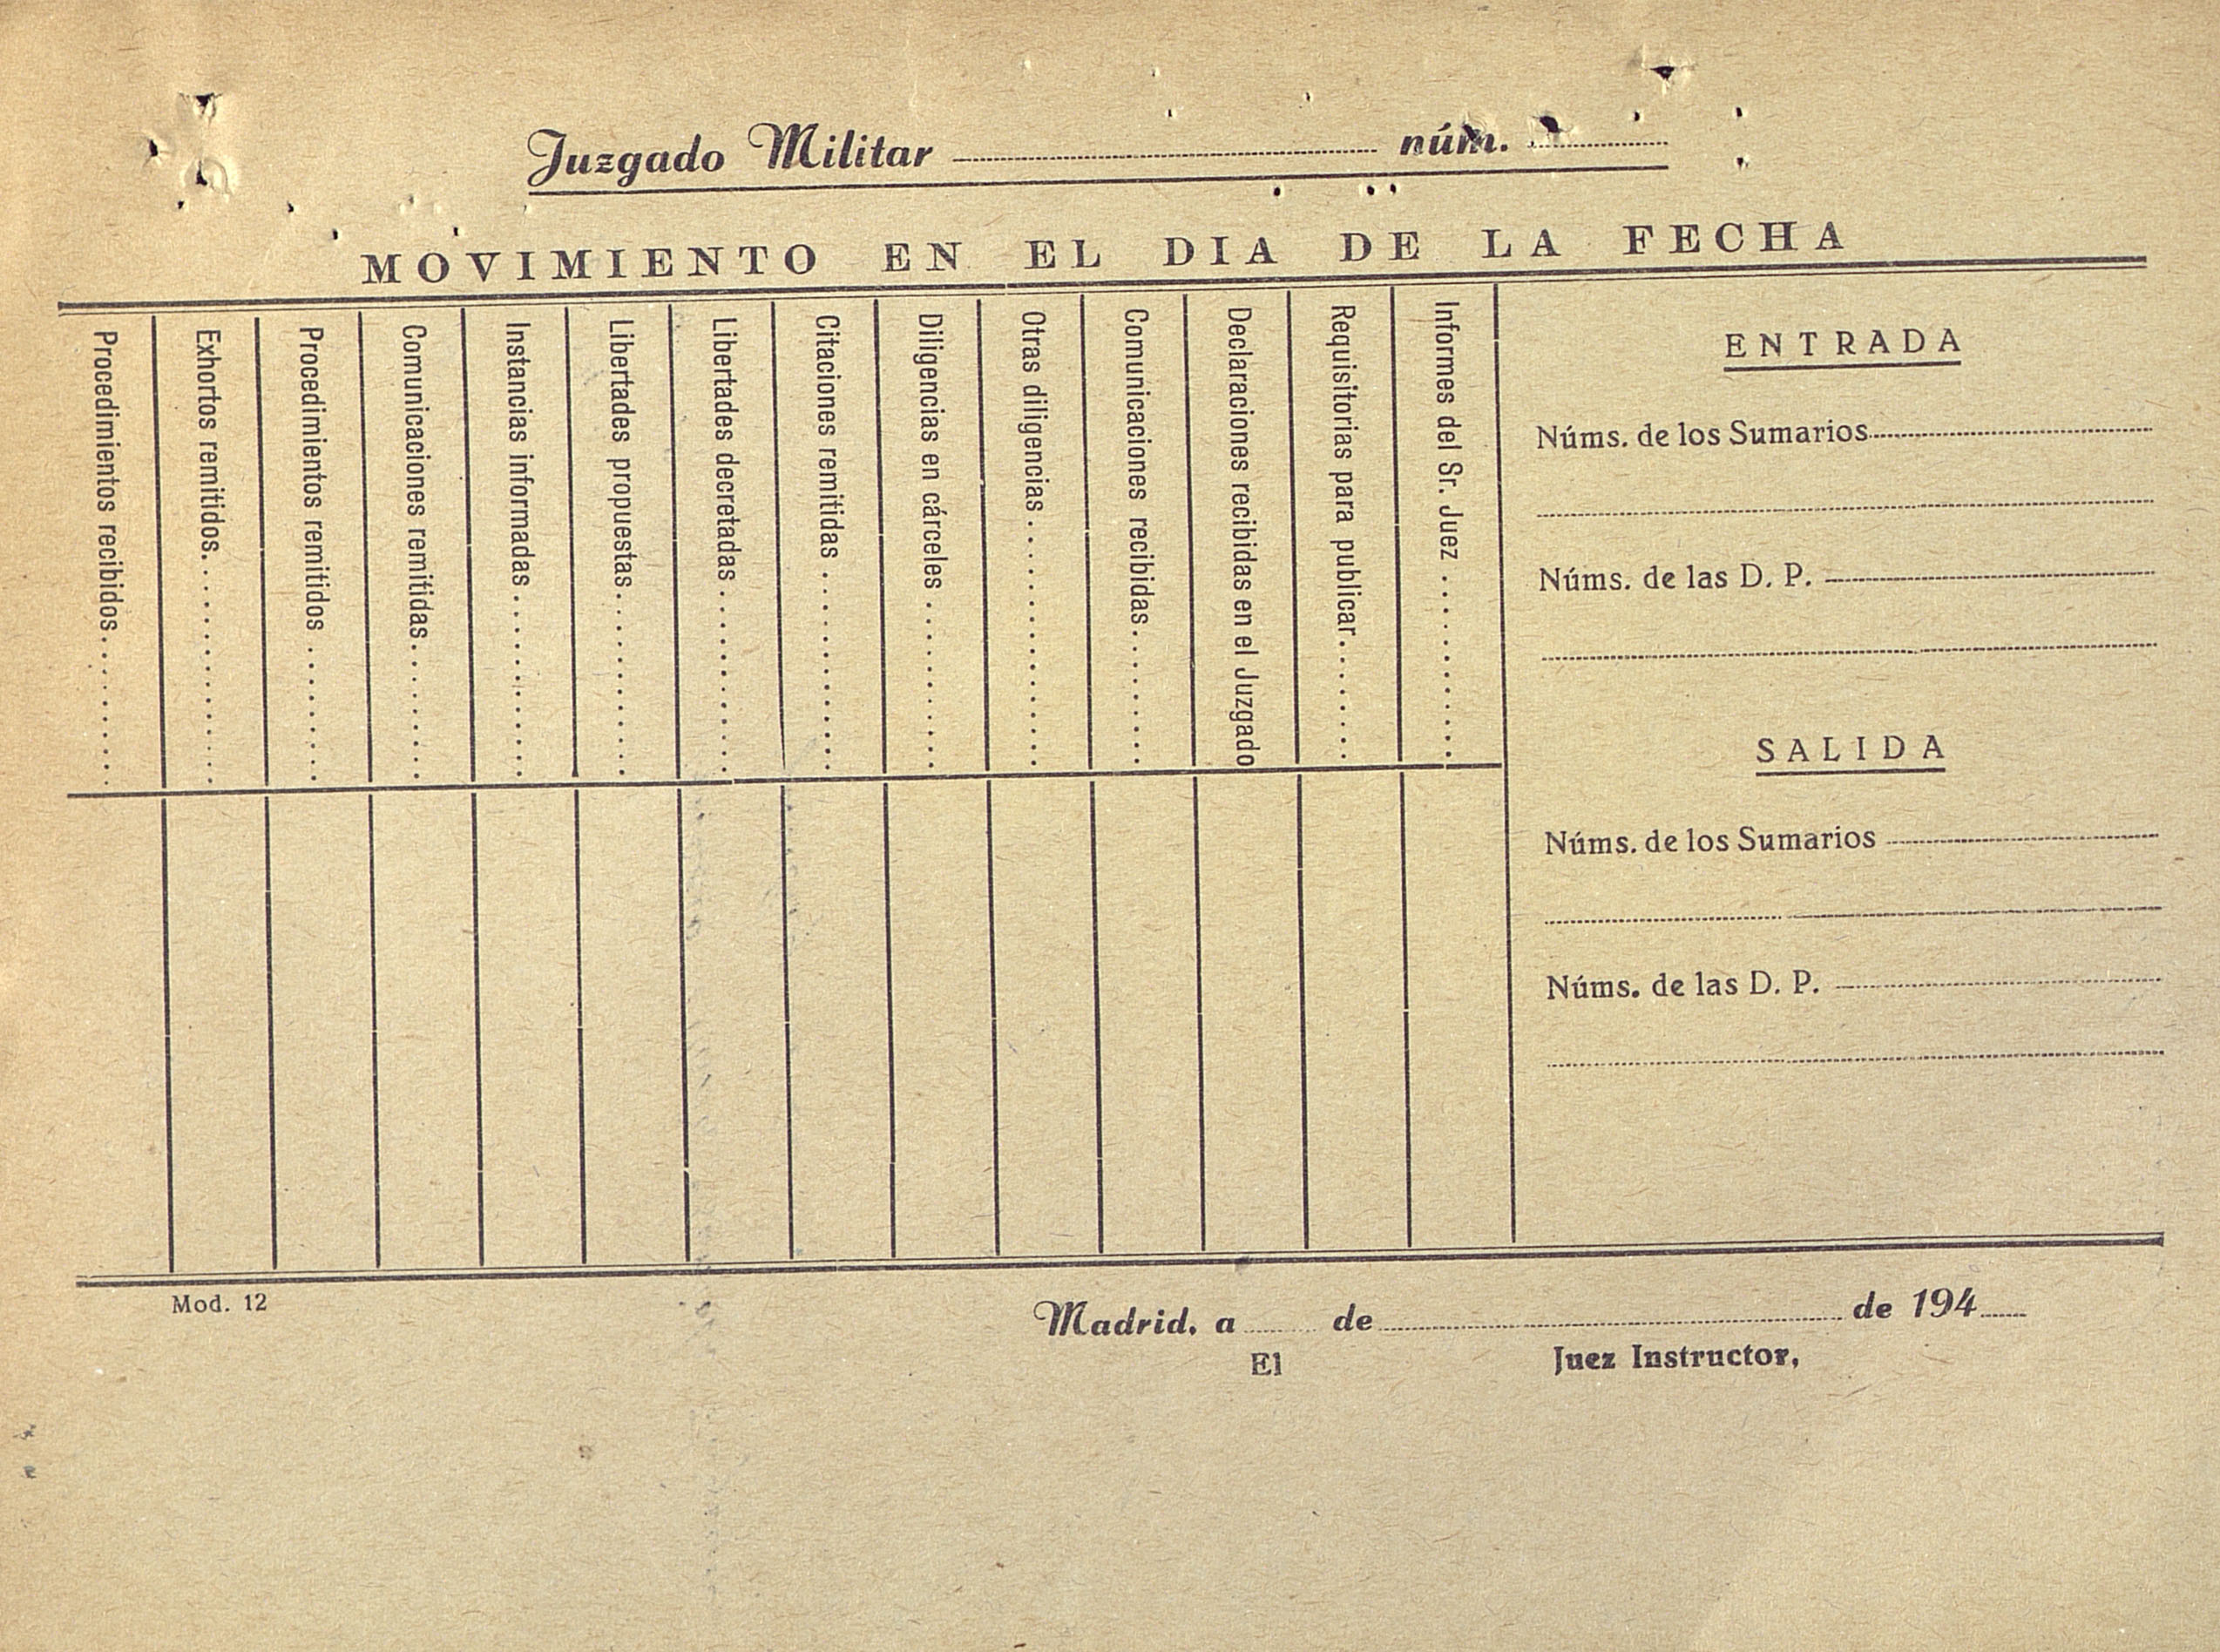 Juzgado Militar ........ núm. ........
MOVIMIENTO EN EL DIA DE LA FECHA
Procedimientos recibidos.........
Exhortos remitidos...........
Procedimientos remitidos ........
Comunicaciones remitidas.........
Instancias informadas ..........
Libertades propuestas...........
Libertades decretadas ..........
Citaciones remitidas ...........
Diligencias en cárceles .........
Otras diligencias .............
Comunicaciones recibidas........
Declaraciones recibidas en el Juzgado
Requisitorias para publicar.......
Informes del Sr. Juez ..........
ENTRADA
Núms. de los Sumarios........
Núms. de las D. P. ........
SALIDA
Núms. de los Sumarios ........
Núms. de las D. P. ........
Mod. 12
Madrid, a ...... de ........ de 194......
El Juez Instructor,